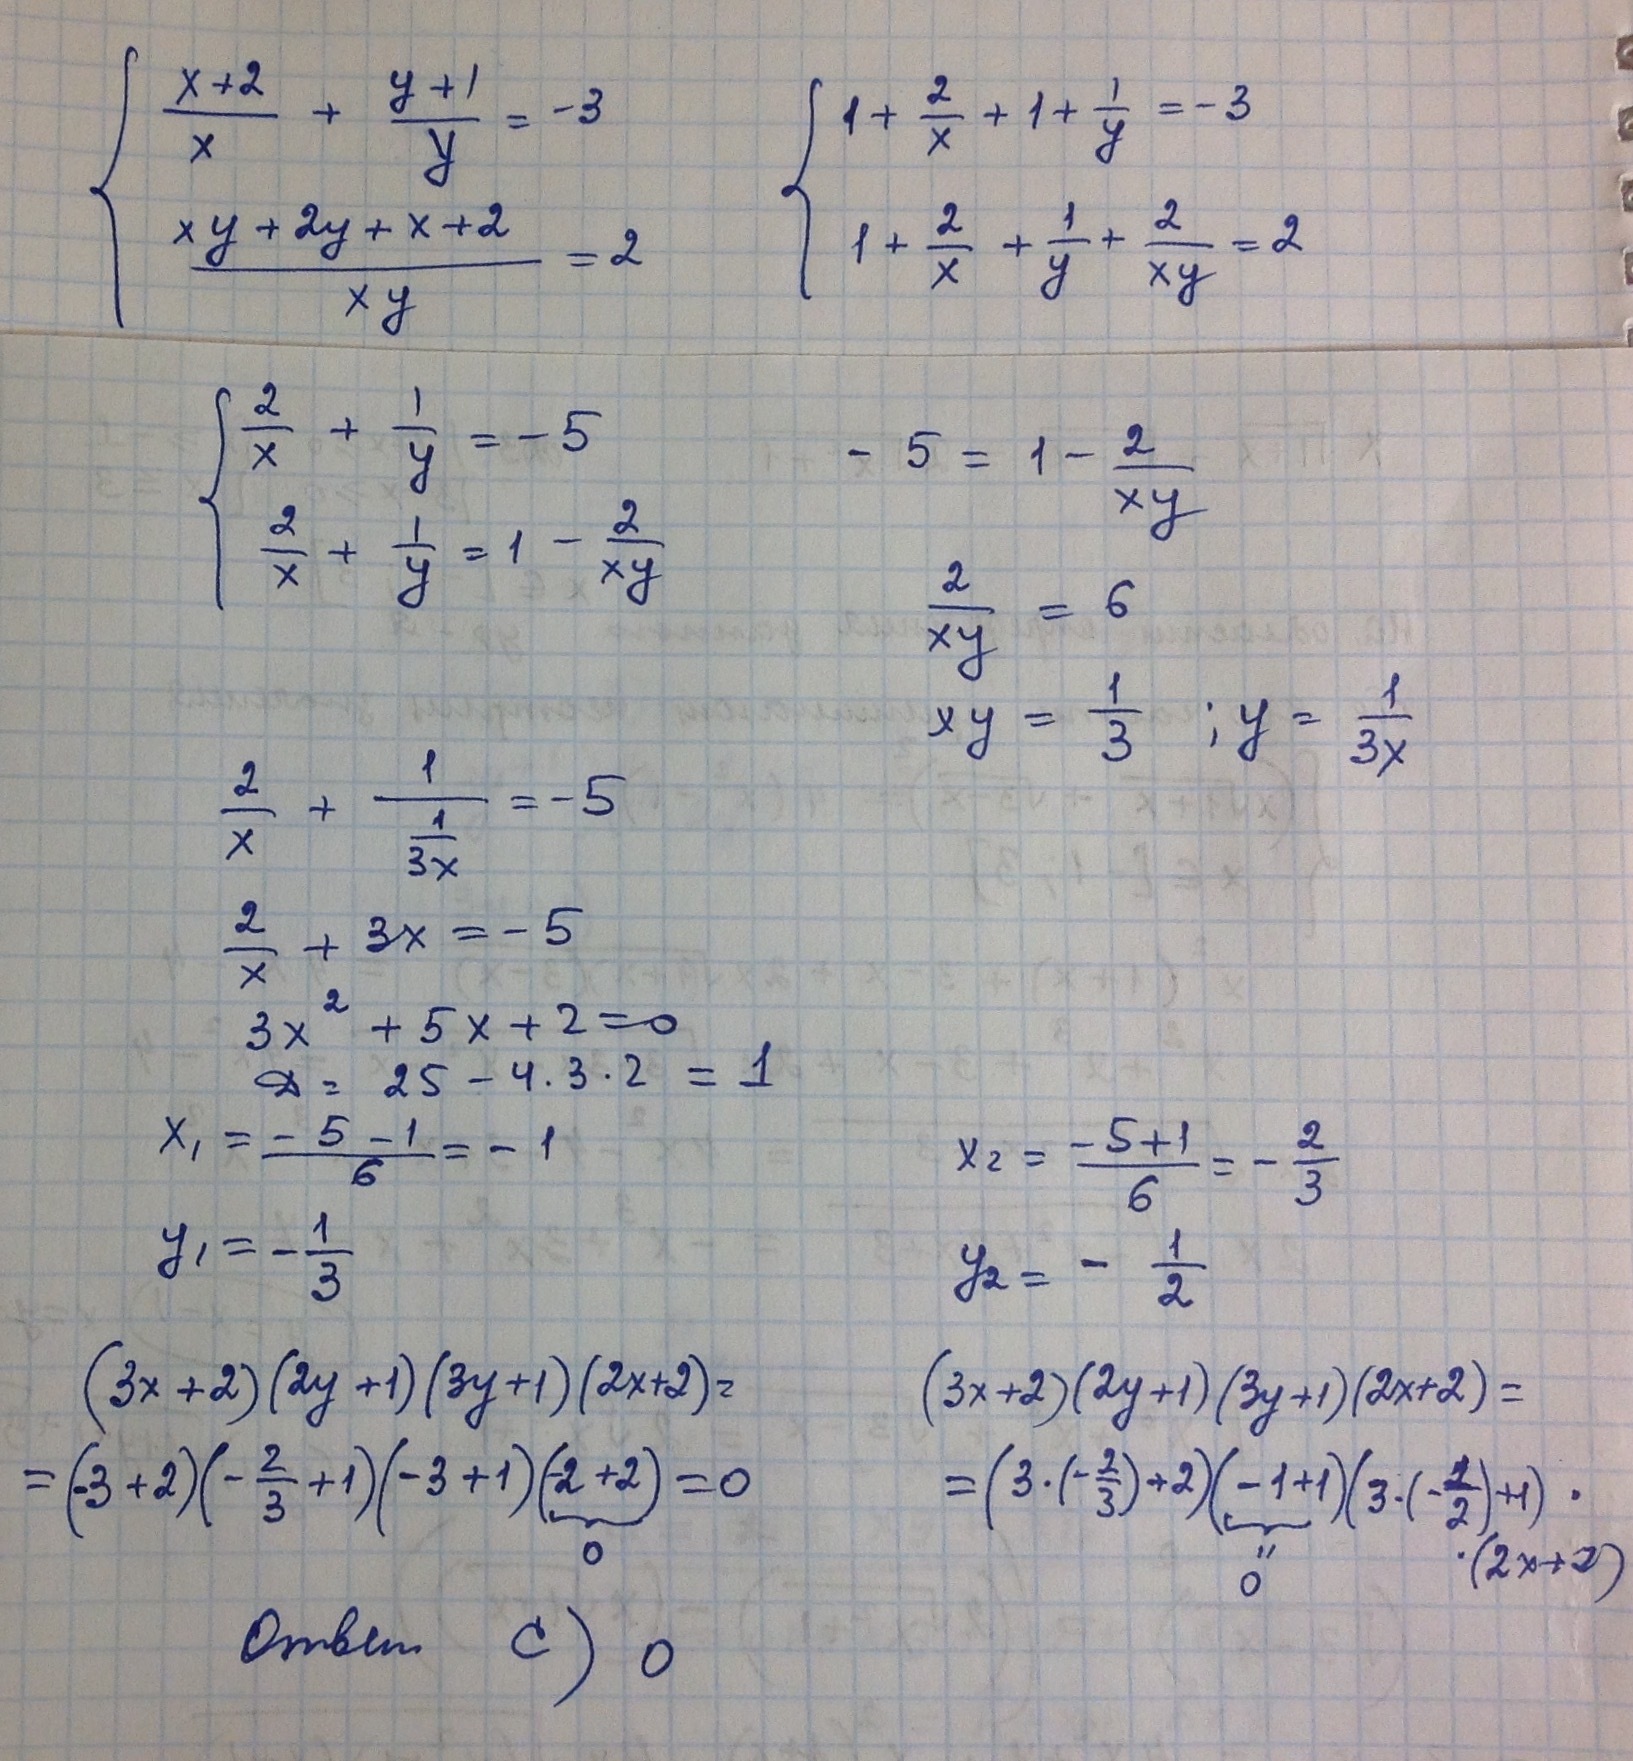 { (x+2)/x + (y+1)/y = -3
(xy+2y+x+2)/(xy) = 2
{ 1 + 2/x + 1 + 1/y = -3
1 + 2/x + 1/y + 2/(xy) = 2
{ 2/x + 1/y = -5
2/x + 1/y = 1 - 2/(xy)
-5 = 1 - 2/(xy)
2/(xy) = 6
xy = 1/3 ; y = 1/(3x)
2/x + 1/(1/(3x)) = -5
2/x + 3x = -5
3x² + 5x + 2 = 0
D = 25 - 4·3·2 = 1
x₁ = (-5-1)/6 = -1
x₂ = (-5+1)/6 = -2/3
y₁ = -1/3
y₂ = -1/2
(3x+2)(2y+1)(3y+1)(2x+2) =
= (-3+2)(-2/3+1)(-3+1)(-2+2) = 0
0
(3x+2)(2y+1)(3y+1)(2x+2) =
= (3·(-2/3)+2)(-1+1)(3·(-1/2)+1)·
·(2x+2)
"
0
Ответ C) 0